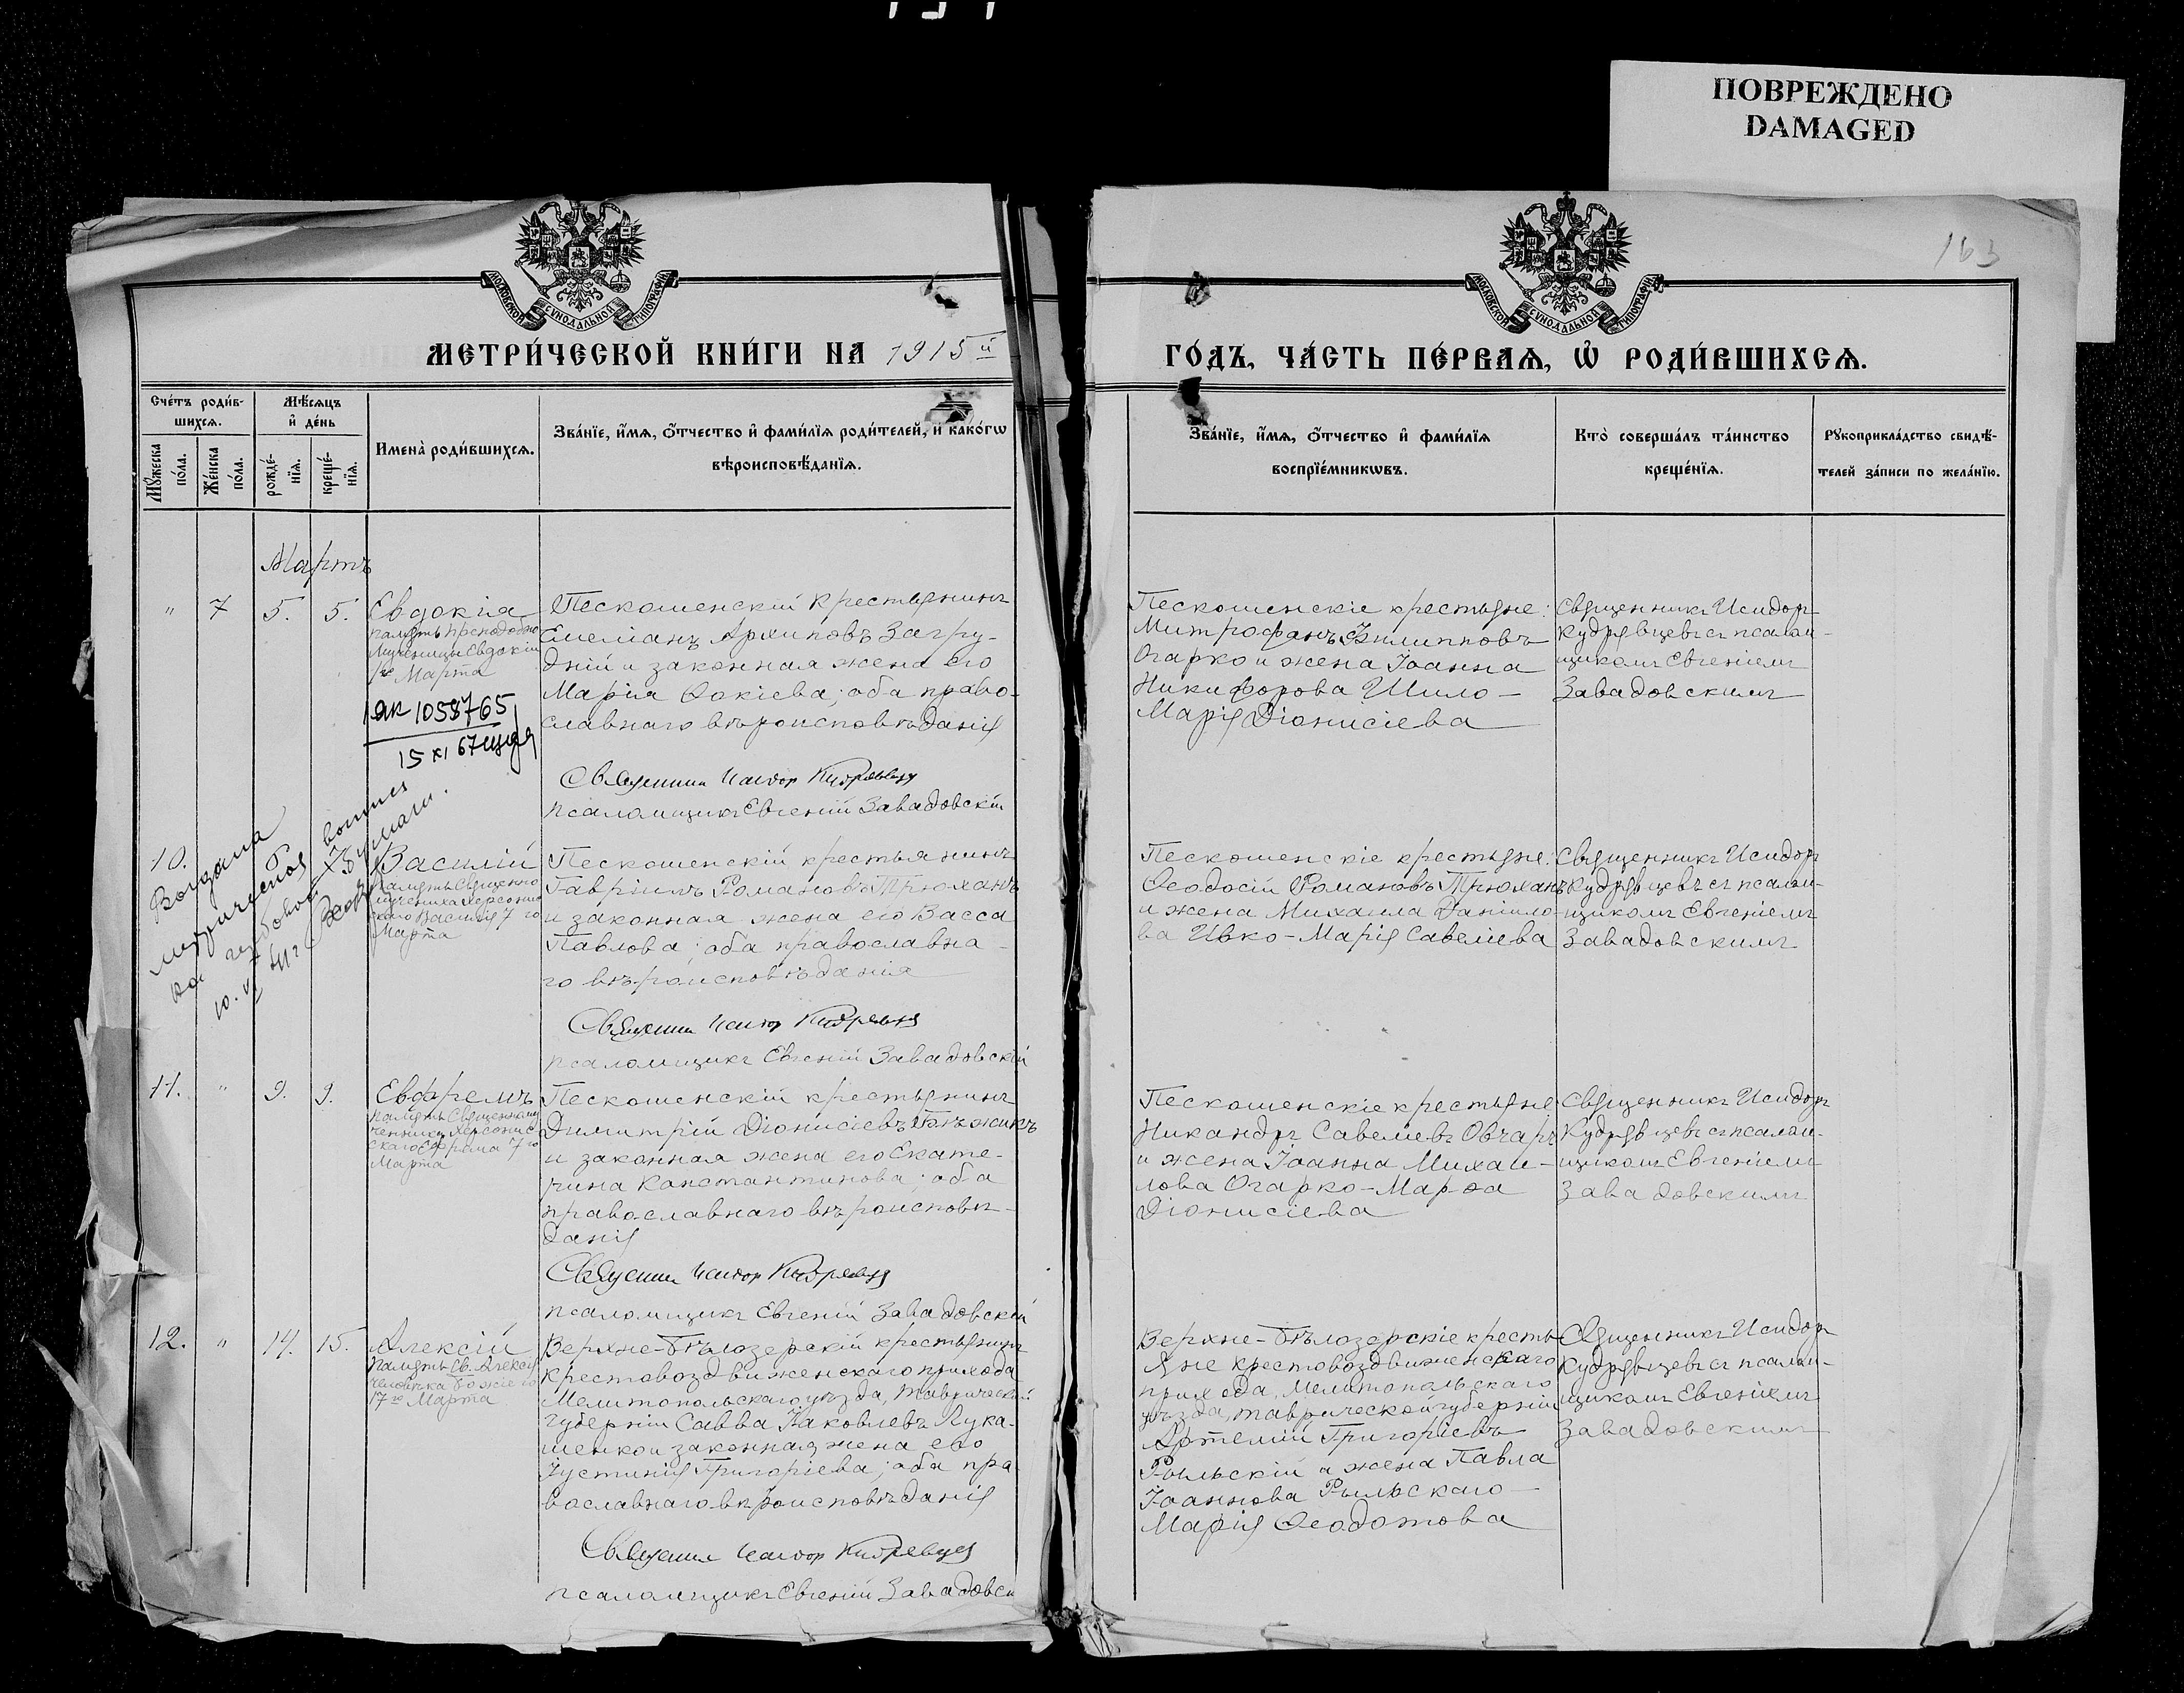 ПОВРЕЖДЕНО
DAMAGED
163
МОСКОВСКОЙ СѴНОДАЛЬНОЙ ТИПОГРАФІИ
МОСКОВСКОЙ СѴНОДАЛЬНОЙ ТИПОГРАФІИ
МЕТРИ́ЧЕСКОЙ КНИ́ГИ НА 1915й
ГО́ДЪ, ЧА́СТЬ ПЕ́РВАѦ, Ѡ҆ РОДИ́ВШИХСѦ.
Сче́тъ роди́в-
шихсѧ.
Мѣ́сѧцъ
и҆ де́нь
Мꙋ́жеска
по́ла.
Же́нска
по́ла.
рожде́-
нїѧ.
креще́-
нїѧ.
Имена̀ роди́вшихсѧ.
Зва́нїе, и҆́мѧ, ѻ҆́тчество и҆ фами́лїѧ роди́телей, и҆ како́гѡ
вѣроисповѣ́данїѧ.
Зва́нїе, и҆́мѧ, ѻ҆́тчество и҆ фами́лїѧ
воспрїе́мникѡвъ.
Кто̀ соверша́лъ та́инство
креще́нїѧ.
Рꙋкоприкла́дство свидѣ́-
телей за́писи по жела́нїю.
Мартъ
" 7 5. 5. Евдокія
память преподобно
мученицы Евдокіи
1го Марта
ЯК 1058765
15 XI 67
Пескошенскій крестьянинъ
Емеліанъ Архиповъ Загру-
дній и законная жена его
Марія Ѳокіева; оба право-
славнаго вѣроисповѣданія
Священник Исидор Кудрявцев
псаломщикъ Евгеній Завадовскій
Пескошенскіе крестьяне:
Митрофанъ Филипповъ
Огарко и жена Іоанна
Никифорова Шило-
Марія Діонисіева
Священникъ Исидор
Кудрявцевъ съ псалом-
щикомъ Евгеніемъ
Завадовскимъ
10.
Выдана
на гербовой бумаги.
Василій
память Священно
мученика Херсонис
скаго Василія 7 го
Марта
Пескошенскій крестьянинъ
Гавріилъ Романовъ Трюханъ
и законная жена его Васса
Павлова; оба православна-
го вѣроисповѣданія
Священник Исидор Кудрявцев
псаломщикъ Евгеній Завадовскій
Пескошенскіе крестьяне:
Ѳеодосій Романовъ Трюханъ
и жена Михаила Даніило-
ва Ивко-Марія Савеліева
Священникъ Исидоръ
Кудрявцевъ съ псалом-
щикомъ Евгеніемъ
Завадовскимъ
11. " 9. 9. Евфремъ
память Священному
ченика Херсонис
скаго Ефрема 7 го
Марта
Пескошенскій крестьянинъ
Димитрій Діонисіевъ
и законная жена его Екате-
рина Константинова; оба
православнаго вѣроисповѣ-
данія
Священник Исидор Кудрявцев
псаломщикъ Евгеній Завадовскій
Пескошенскіе крестьяне
Никандръ Савеліевъ Овчаръ
и жена Іоанна Михаи-
лова Огарко-Марѳа
Діонисіева
Священникъ Исидоръ
Кудрявцевъ съ псалом-
щикомъ Евгеніемъ
Завадовскимъ
12. " 14. 15. Алексій
память Св. Алексія
человѣка Божіего
17го Марта
Верхне-Бѣлозерскій крестьянинъ
крестовоздвиженскаго прихода
Мелитопольскаго уѣзда, таврической
губерніи Савва Іаковлевъ Лука-
шенко и законная жена его
Іустинія Григоріева; оба пра-
вославнаго вѣроисповѣданія
Священник Исидор Кудрявцев
псаломщикъ Евгеній Завадовскі
Верхне-Бѣлозерскіе кресть-
яне крестовоздвиженскаго
прихода, Мелитопольскаго
уѣзда, таврической губерніи
Артемій Григоріевъ
Рыльскій и жена Павла
Іоаннова Рыльскаго-
Марія Ѳеодотова
Священникъ Исидор
Кудрявцевъ съ псалом-
щикомъ Евгеніемъ
Завадовскимъ